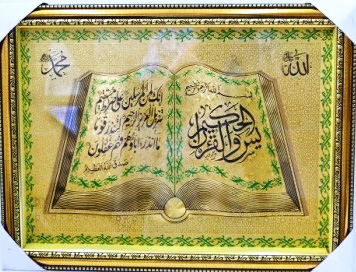 الله
محمد
بسم الله الرحمن الرحيم
يس والقرآن الحكيم
انك لمن المرسلين على صراط مستقيم
تنزيل العزيز الرحيم لتنذر قوما
ما انذر اباؤهم فهم غفلون
صدق الله العظيم